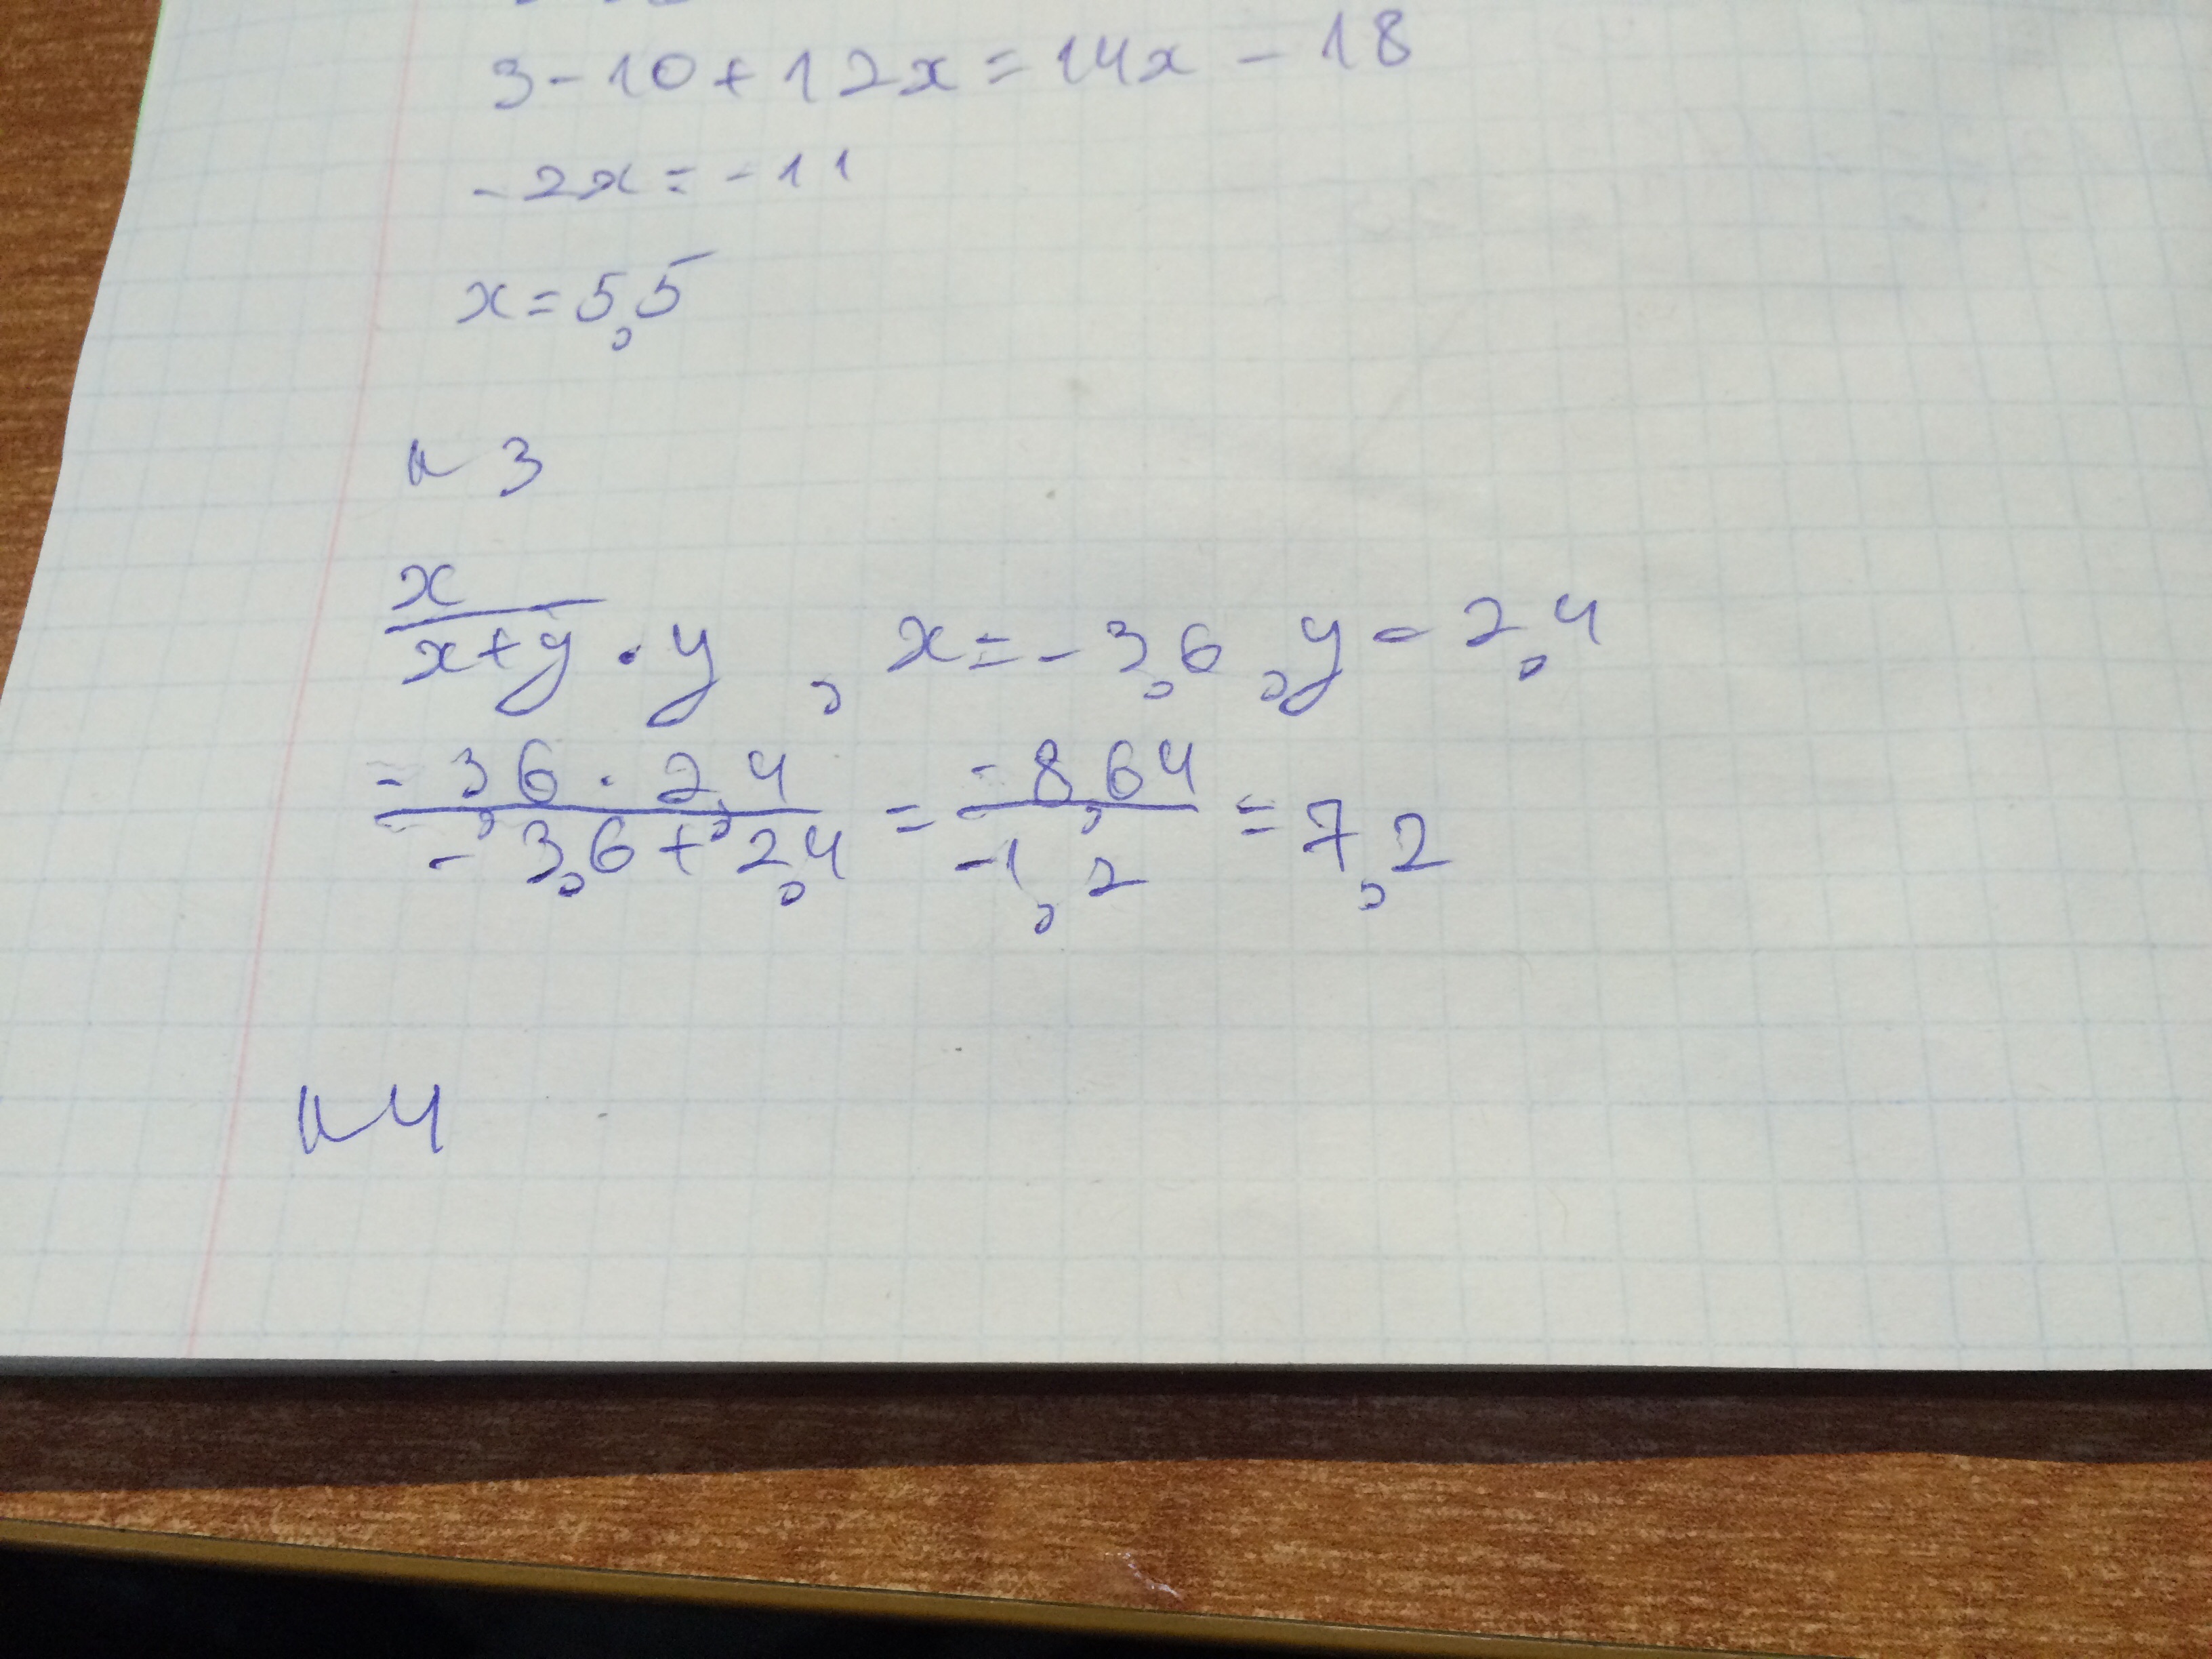 3-10+12x=14x-18
-2x=-11
x=5,5
N3
x
x+y · y , x=-3,6, y=2,4
-3,6 · 2,4 -8,64
-3,6+2,4 = -1,2 = 7,2
N4